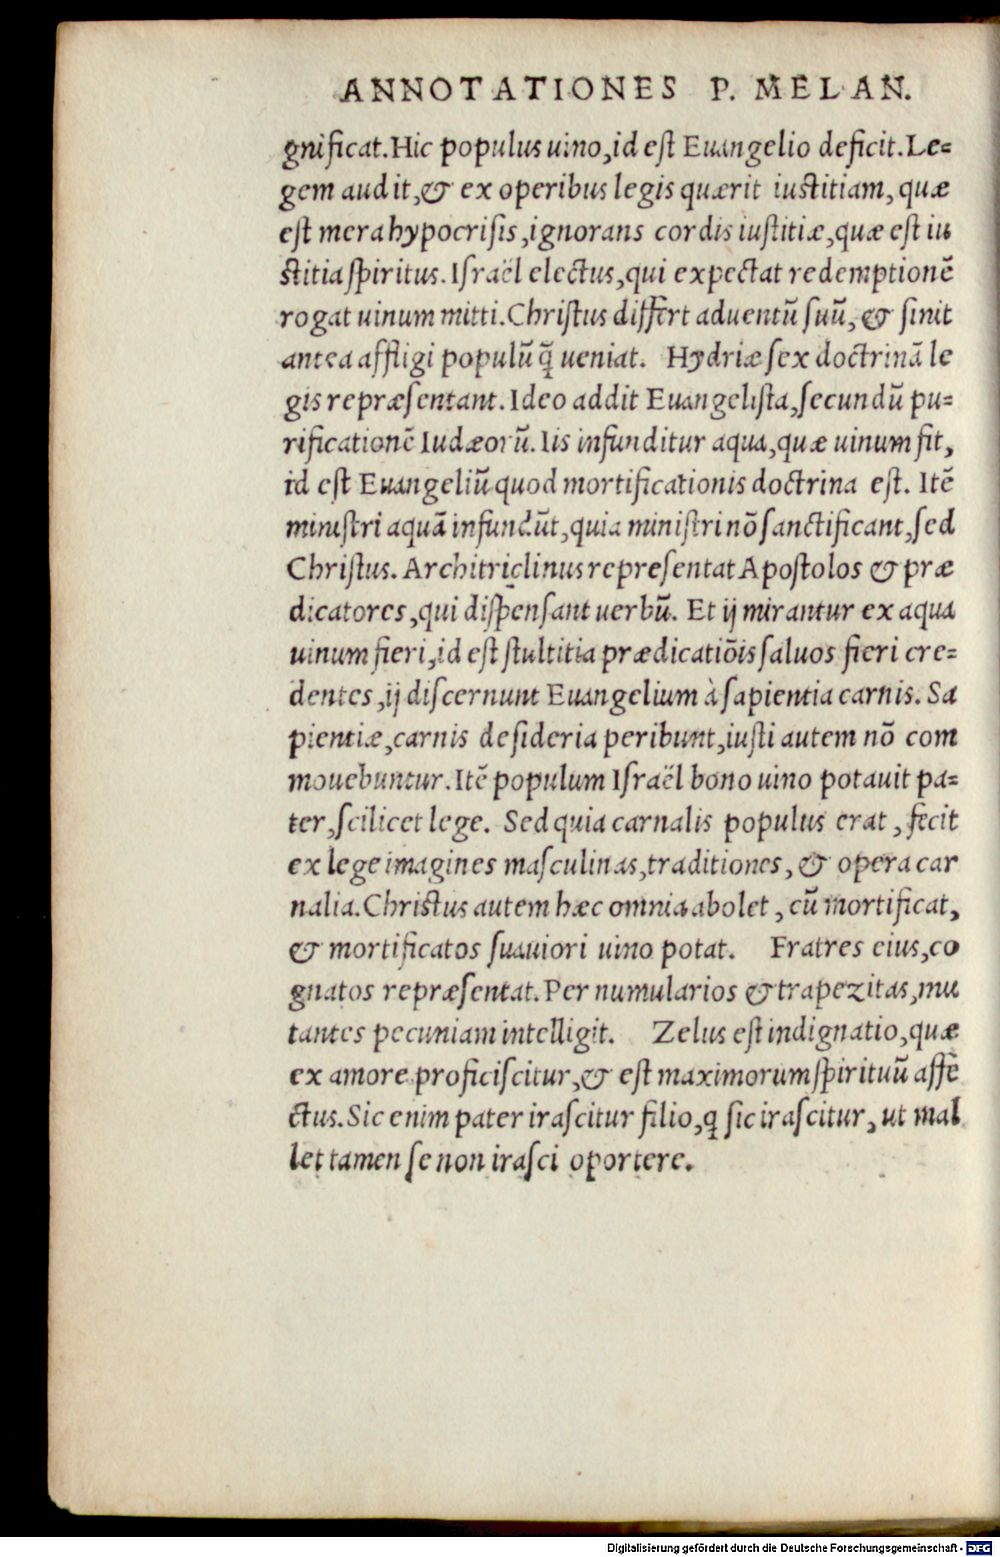 ANNOTATIONES P. MELAN.
gnificat. Hic populus uino, id eſt Euangelio deficit. Le=
gem audit, & ex operibus legis quærit iuſtitiam, quæ
eſt mera hypocriſis, ignorans cordis iuſtitiæ, quæ eſt iu
ſtitia ſpiritus. Iſraël electus, qui expectat redemptionē
rogat uinum mitti. Chriſtus differt aduentū ſuū, & ſinit
antea affligi populū q̄ ueniat. Hydriæ ſex doctrinā le
gis repræſentant. Ideo addit Euangeliſta, ſecundū pu=
rificationē Iudæorū. Iis infunditur aqua, quæ uinum fit,
id eſt Euangeliū quod mortificationis doctrina eſt. Itē
miniſtri aquā infundūt, quia miniſtri nō ſanctificant, ſed
Chriſtus. Architriclinus repreſentat Apoſtolos & præ
dicatores, qui diſpenſant uerbū. Et ij mirantur ex aqua
uinum fieri, id eſt ſtultitia prædicatiōis ſaluos fieri cre=
dentes, ij diſcernunt Euangelium à ſapientia carnis. Sa
pientiæ, carnis deſideria peribunt, iuſti autem nō com
mouebuntur. Itē populum Iſraël bono uino potauit pa=
ter, ſcilicet lege. Sed quia carnalis populus erat, fecit
ex lege imagines maſculinas, traditiones, & opera car
nalia. Chriſtus autem hæc omnia abolet, cū mortificat,
& mortificatos ſuauiori uino potat. Fratres eius, co
gnatos repræſentat. Per numularios & trapezitas, mu
tantes pecuniam intelligit. Zelus eſt indignatio, quæ
ex amore proficiſcitur, & eſt maximorum ſpirituū affe
ctus. Sic enim pater iraſcitur filio, q ſic iraſcitur, ut mal
let tamen ſe non iraſci oportere.
Digitalisierung gefördert durch die Deutsche Forschungsgemeinschaft - DFG